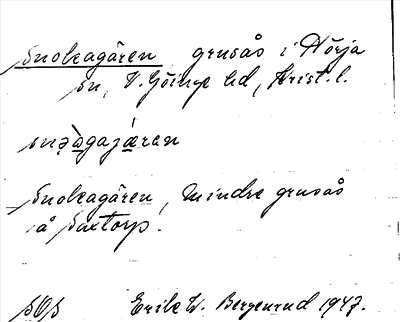 Snokagären, grusås i Nörja
sn, V. Göinge hd, Krist. l.
Snokagären, mindre grusås
å Saxtorp.
Erik W. Bergenrud 1947.